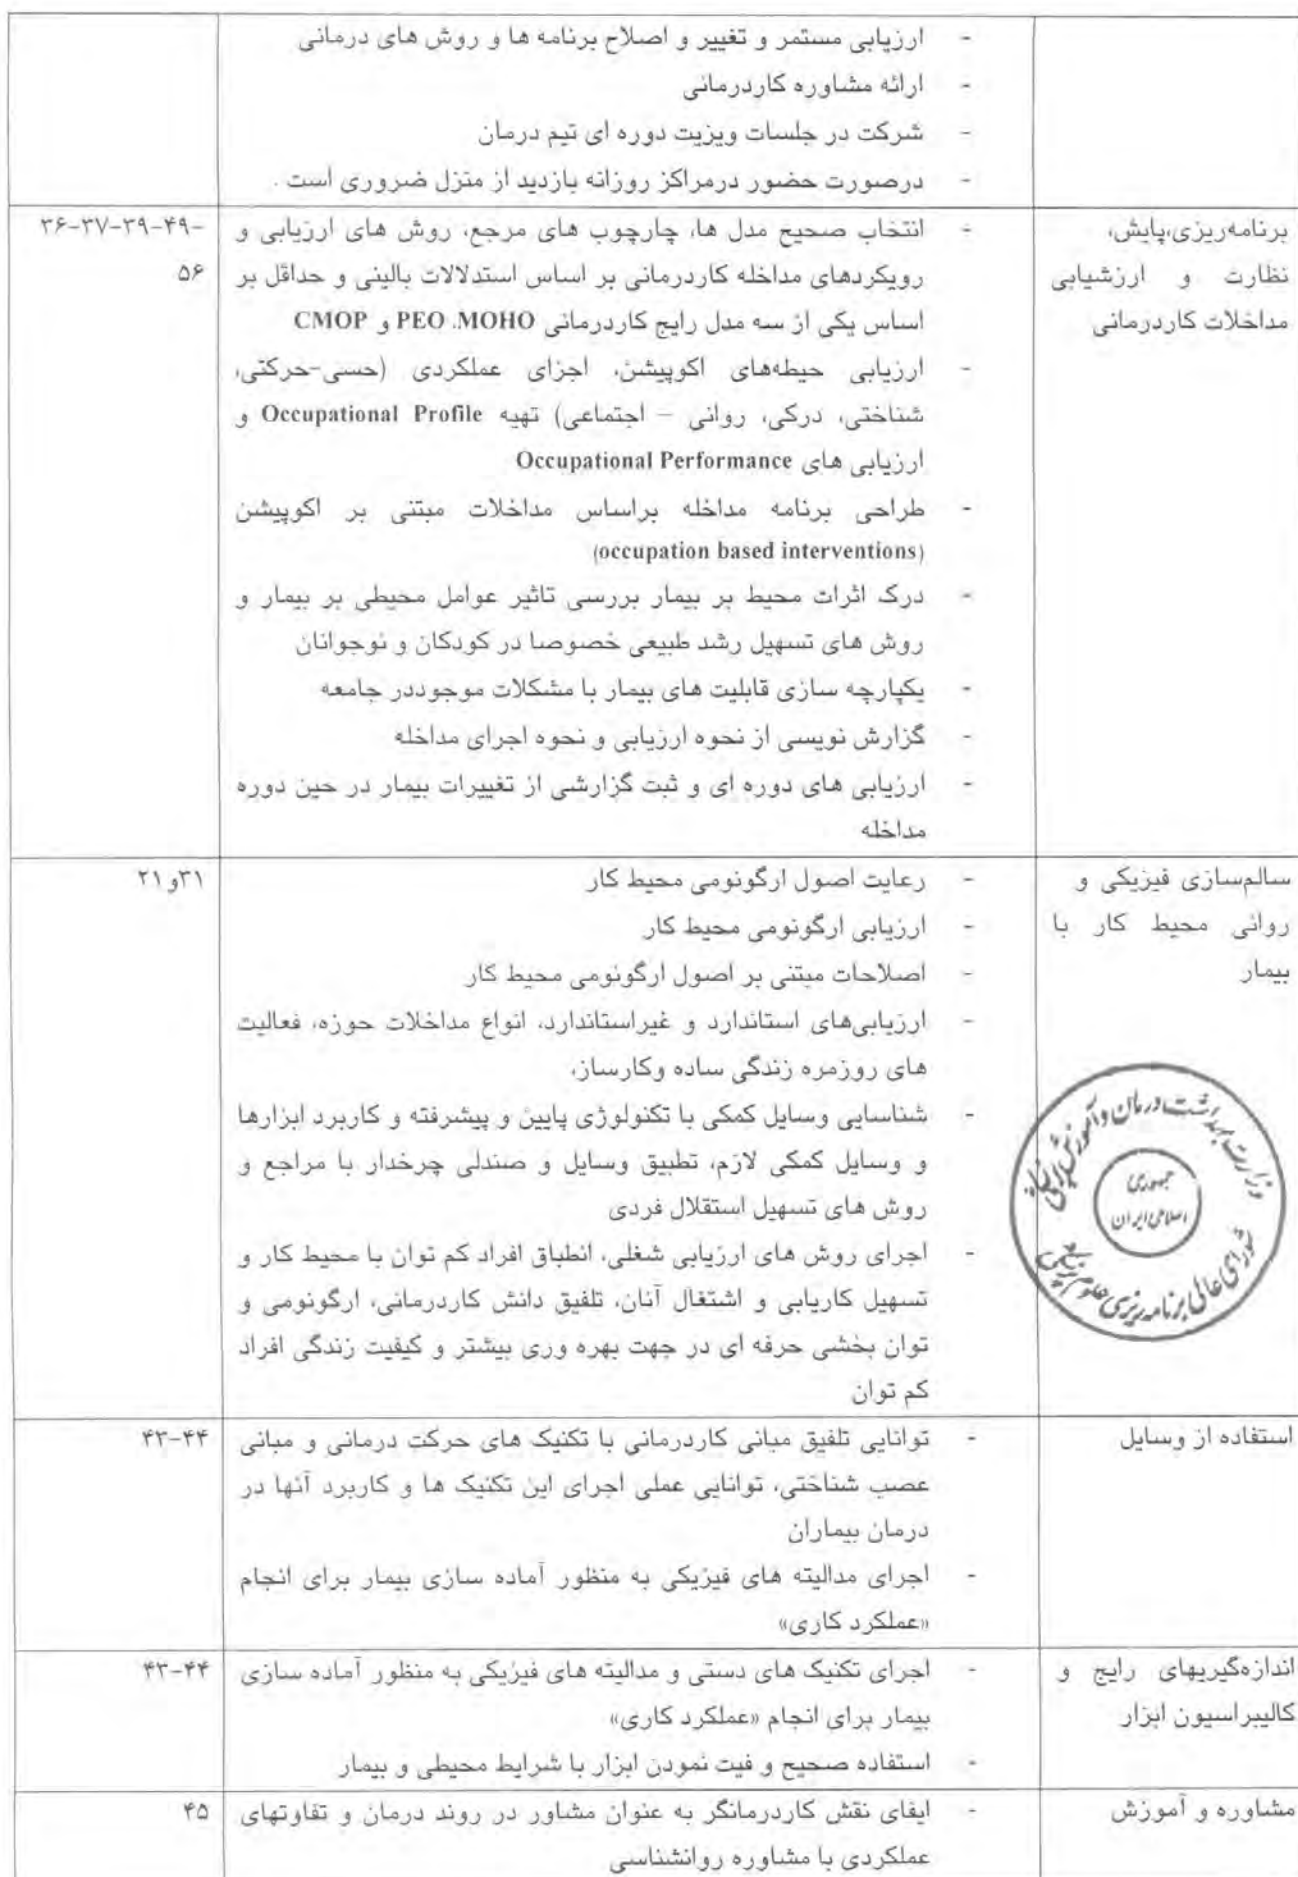 - ارزیابی مستمر و تغییر و اصلاح برنامه ها و روش های درمانی
- ارائه مشاوره کاردرمانی
- شرکت در جلسات ویزیت دوره ای تیم درمان
- درصورت حضور درمراکز روزانه بازدید از منزل ضروری است .
برنامه‌ریزی،پایش،
نظارت و ارزشیابی
مداخلات کاردرمانی
- انتخاب صحیح مدل ها، چارچوب های مرجع، روش های ارزیابی و
رویکردهای مداخله کاردرمانی بر اساس استدلالات بالینی و حداقل بر
اساس یکی از سه مدل رایج کاردرمانی PEO ،MOHO و CMOP
- ارزیابی حیطه‌های اکوپیشن، اجزای عملکردی (حسی-حرکتی،
شناختی، درکی، روانی – اجتماعی) تهیه Occupational Profile و
ارزیابی های Occupational Performance
- طراحی برنامه مداخله براساس مداخلات مبتنی بر اکوپیشن
(occupation based interventions)
- درک اثرات محیط بر بیمار بررسی تاثیر عوامل محیطی بر بیمار و
روش های تسهیل رشد طبیعی خصوصا در کودکان و نوجوانان
- یکپارچه سازی قابلیت های بیمار با مشکلات موجوددر جامعه
- گزارش نویسی از نحوه ارزیابی و نحوه اجرای مداخله
- ارزیابی های دوره ای و ثبت گزارشی از تغییرات بیمار در حین دوره
مداخله
۳۶-۳۷-۳۹-۴۹-
۵۶
سالم‌سازی فیزیکی و
روانی محیط کار با
بیمار
- رعایت اصول ارگونومی محیط کار
- ارزیابی ارگونومی محیط کار
- اصلاحات مبتنی بر اصول ارگونومی محیط کار
- ارزیابی‌های استاندارد و غیراستاندارد، انواع مداخلات حوزه، فعالیت
های روزمره زندگی ساده وکارساز،
- شناسایی وسایل کمکی با تکنولوژی پایین و پیشرفته و کاربرد ابزارها
و وسایل کمکی لازم، تطبیق وسایل و صندلی چرخدار با مراجع و
روش های تسهیل استقلال فردی
- اجرای روش های ارزیابی شغلی، انطباق افراد کم توان با محیط کار و
تسهیل کاریابی و اشتغال آنان، تلفیق دانش کاردرمانی، ارگونومی و
توان بخشی حرفه ای در جهت بهره وری بیشتر و کیفیت زندگی افراد
کم توان
۳۱و ۲۱
وزارت بهداشت درمان و آموزش پزشکی
جمهوری
اسلامی ایران
شورای عالی برنامه ریزی علوم پزشکی
استفاده از وسایل
- توانایی تلفیق مبانی کاردرمانی با تکنیک های حرکت درمانی و مبانی
عصب شناختی، توانایی عملی اجرای این تکنیک ها و کاربرد آنها در
درمان بیماران
- اجرای مدالیته های فیزیکی به منظور آماده سازی بیمار برای انجام
«عملکرد کاری»
۴۳-۴۴
اندازه‌گیریهای رایج و
کالیبراسیون ابزار
- اجرای تکنیک های دستی و مدالیته های فیزیکی به منظور آماده سازی
بیمار برای انجام «عملکرد کاری»
- استفاده صحیح و فیت نمودن ابزار با شرایط محیطی و بیمار
۴۳-۴۴
مشاوره و آموزش
- ایفای نقش کاردرمانگر به عنوان مشاور در روند درمان و تفاوتهای
عملکردی با مشاوره روانشناسی
۴۵